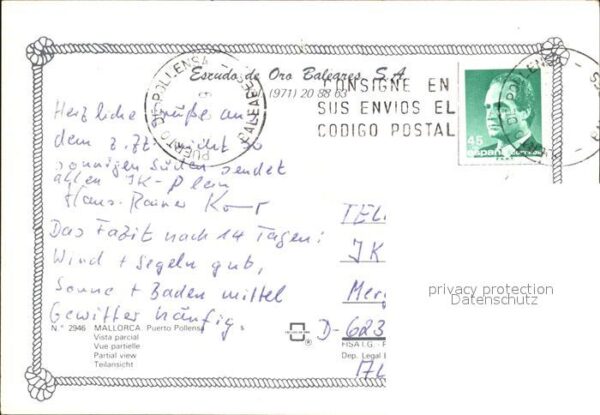 Escudo de Oro Baleares, S.A.
(971) 20 88 63
PUERTO DE POLLENSA
BALEARES
CONSIGNE EN
SUS ENVIOS EL
CODIGO POSTAL
45
españa
Herzliche Grüße an
dem z.Zt. nicht so
sonnigen Süden sendet
allen JK-
Hans-Rainer
Das Fazit nach 14 Tagen:
Wind + Segeln gut,
Sonne + Baden mittel
Gewitter häufig
TEL
JK
Mer
D-623
privacy protection
Datenschutz
N.º 2946 MALLORCA. Puerto Pollensa
Vista parcial
Vue partielle
Partial view
Teilansicht
FISA I.G. -
Dep. Legal